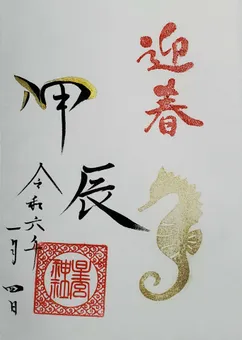 迎春
甲辰
令和六年
一月四日
神社